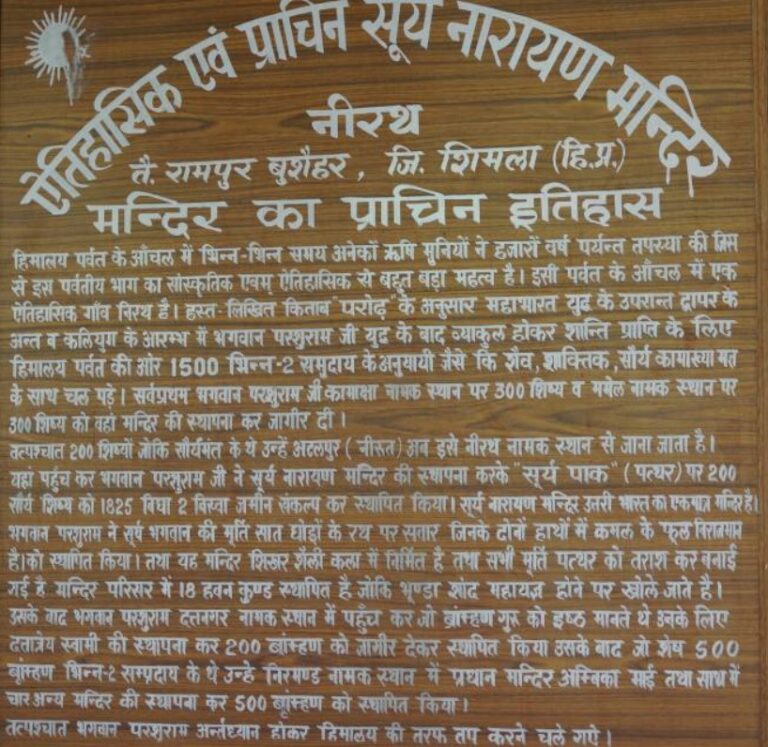 ऐतिहासिक एवं प्राचिन सूर्य नारायण मन्दिर
नीरथ
तै. रामपुर बुशैहर, जि. शिमला (हि.प्र.)
मन्दिर का प्राचिन इतिहास
हिमालय पर्वत के आँचल में भिन्न-भिन्न समय अनेकों ऋषि मुनियों ने हजारों वर्ष पर्यन्त तपस्या की जिस
से इस पर्वतीय भाग का सांस्कृतिक एवम् ऐतिहासिक से बहुत बड़ा महत्व है। इसी पर्वत के आँचल में एक
ऐतिहासिक गाँव निरथ है। हस्त-लिखित किताब "परोढ़" के अनुसार महाभारत युद्ध के उपरान्त द्वापर के
अन्त व कलियुग के आरम्भ में भगवान परशुराम जी युद्ध के बाद व्याकुल होकर शान्ति प्राप्ति के लिए
हिमालय पर्वत की ओर 1500 भिन्न-2 समुदाय के अनुयायी जैसे कि शैव, शाक्तिक, सौर्य कामाख्या मत
के साथ चल पड़े। सर्वप्रथम भगवान परशुराम जी कामाक्षा नामक स्थान पर 300 शिष्य व ममेल नामक स्थान पर
300 शिष्य को वहां मन्दिर की स्थापना कर जागीर दी।
तत्पश्चात 200 शिष्यों जोकि सौर्यमंत के थे उन्हें अटलपुर (नीरुत) अब इसे नीरथ नामक स्थान से जाना जाता है।
यहां पहुँच कर भगवान परशुराम जी ने सूर्य नारायण मन्दिर की स्थापना करके "सूर्य पाक" (पत्थर) पर 200
सौर्य शिष्य को 1825 विघा 2 विस्वा जमीन संकल्प कर स्थापित किया। सूर्य नारायण मन्दिर उत्तरी भारत का एकमात्र मन्दिर है।
भगवान परशुराम ने सूर्य भगवान की मूर्ति सात घोड़ों के रथ पर सवार जिनके दोनों हाथों में कमल के फूल विराजमान
है। को स्थापित किया। तथा यह मन्दिर शिखर शैली कला में निर्मित है तथा सभी मूर्ति पत्थर को तराश कर बनाई
गई है मन्दिर परिसर में 18 हवन कुण्ड स्थापित है जोकि भूण्डा शांद महायज्ञ होने पर खोले जाते है।
उसके बाद भगवान परशुराम दत्तनगर नामक स्थान में पहुँच कर जो ब्राम्हण गुरू को इष्ठ मानते थे उनके लिए
दत्तात्रेय स्वामी की स्थापना कर 200 ब्रांम्हण को जागीर देकर स्थापित किया उसके बाद जो शेष 500
ब्रांम्हण भिन्न-2 सम्प्रदाय के थे उन्हे निरमण्ड नामक स्थान में प्रधान मन्दिर अम्बिका माई तथा साथ में
चार अन्य मन्दिर की स्थापना कर 500 ब्रांम्हण को स्थापित किया।
तत्पश्चात भगवान परशुराम अर्न्तध्यान होकर हिमालय की तरफ तप करने चले गऐ।